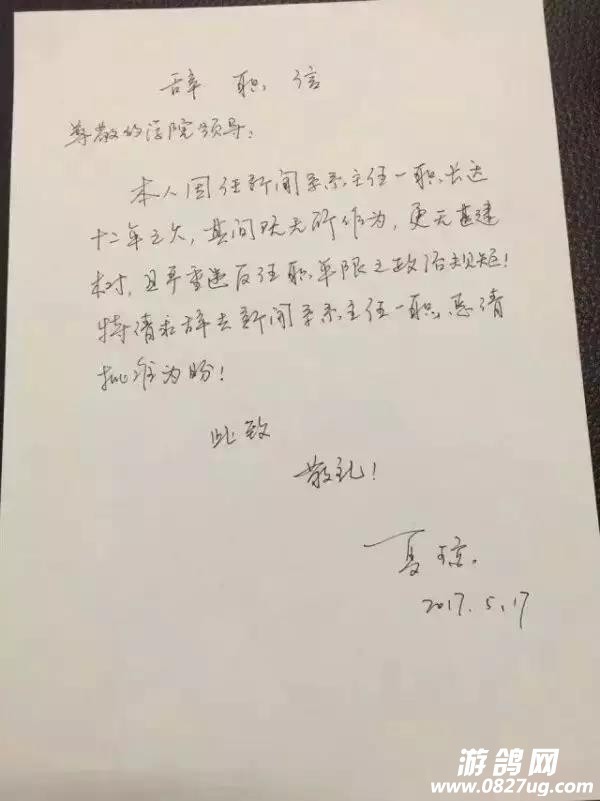 辞职信
尊敬的学院领导：
本人因任新闻系系主任一职长达
十二年之久，其间既无所作为，更无甚建
树，且严重违反任职年限之政治规矩！
特请求辞去新闻系系主任一职，恳请
批准为盼！
此致
敬礼！
夏琼
2017.5.17
游鸽网
www.0827ug.com